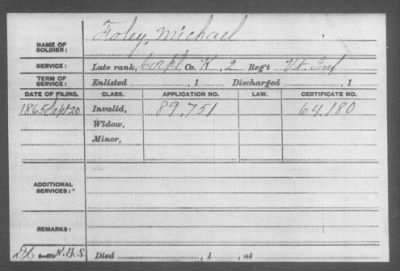 NAME OF SOLDIER: Foley, Michael
SERVICE: Late rank, Corpl Co. K, 2 Reg't Vt. Inf
TERM OF SERVICE: Enlisted , 1 Discharged , 1
DATE OF FILING. CLASS. APPLICATION NO. LAW. CERTIFICATE NO.
1865 Sept 20 Invalid, 89,751 64,180
Widow,
Minor,
ADDITIONAL SERVICES:
REMARKS:
Died , 1 , at